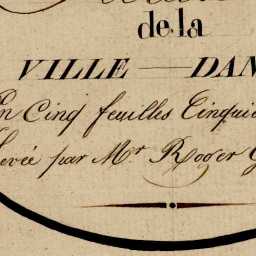 de la
VILLE — DAN
En Cinq feuilles Cinqui
levée par Mr. Roger G